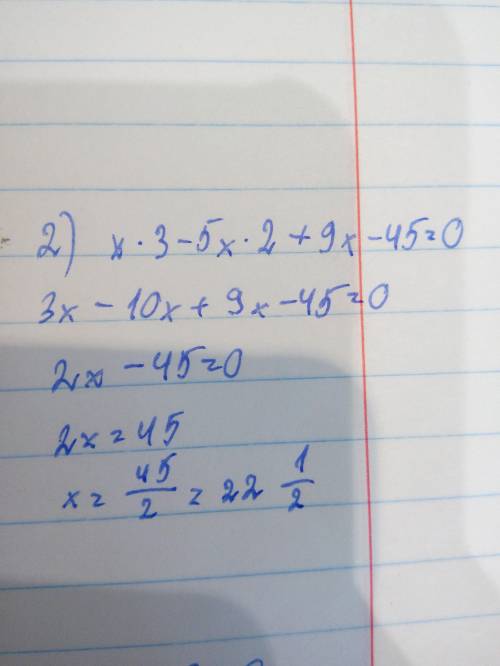 2) x · 3 - 5x · 2 + 9x - 45 = 0
3x - 10x + 9x - 45 = 0
2x - 45 = 0
2x = 45
x = 45/2 = 22 1/2